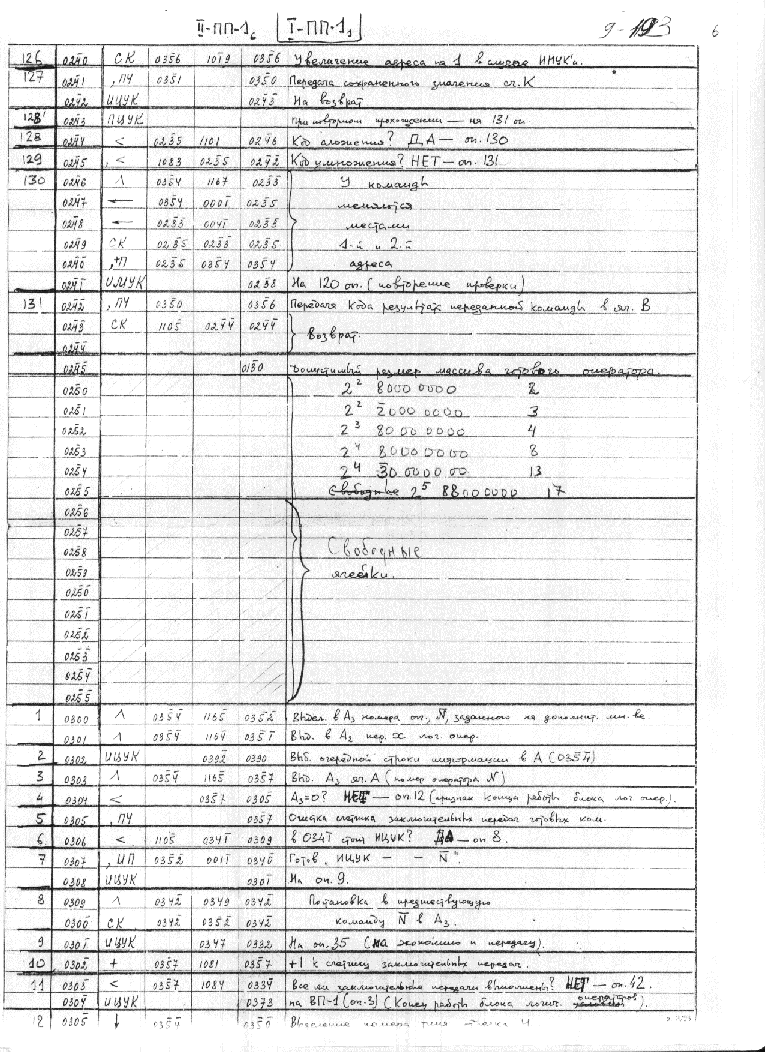 II-ПП-1₆ I-ПП-1₁ 9-193 6
126 0240 СК 0356 1019 0356 Увеличение адреса на 1 в ИЦУК'и.
127 0241 , ПУ 0351 0350 Передача сохраненного значения сч. К
0242 ИЦУК 0243 На возврат
128' 0243 ПЦУК При повторном прохождении — на 131 оп
128 0244 < 0235 1101 0246 Код сложения? ДА — оп. 130
129 0245 , < 1083 0255 0242 Код умножения? НЕТ — оп. 131
130 0246 ^ 0354 1167 0233 У команды
0247 ← 0354 0001 0235 меняются
0248 ← 0233 0041 0233 местами
0249 СК 0235 0233 0235 1-й и 2-й
0240 , +П 0235 0354 0354 адреса
0241 ИЦУК 0238 На 120 оп. (повторение проверки)
131 0242 , ПУ 0350 0356 Передача кода результата переданной команды в яч. В
0243 СК 1105 0244 0244 Возврат.
0244
0245 0130 Допустимый размер массива готового оператора.
0250 2² 80000000 2
0251 2² 20000000 3
0252 2³ 80000000 4
0253 2⁴ 80000000 8
0254 2⁴ 30000000 13
0255 Свободные 2⁵ 88000000 17
0256
0257
0258 Свободные
0259 ячейки.
0250
0251
0252
0253
0254
0255
1 0300 ^ 0354 1165 0352 Выдел. в А₃ номера оп., N, заданного на дополнит.
0301 ^ 0354 1164 0351 Выд. в А₂ пер. х лог. опер.
2 0302 ИЦУК 0392 0390 Выб. очередной строки информации в А (0354)
3 0303 ^ 0354 1165 0357 Выд. А₃ яч. А (номер оператора N)
4 0304 < 0357 0305 А₃=0? НЕТ — оп. 12 (признак конца работы блока лог. опер.).
5 0305 , ПУ 0357 Очистка счетчика заключительных передач готовых ком.
6 0306 < 1105 0341 0309 в 0341 стоит ИЦУК? ДА — оп 8.
7 0307 , ИП 0352 0011 0340 Готов. ИЦУК — — N".
0308 ИЦУК 0301 На оп. 9.
8 0309 ^ 0342 0349 0342 Постановка в предшествующую
0300 СК 0342 0352 0342 команду N в А₃.
9 0301 ИЦУК 0347 0332 На оп. 35 (на экономию и передачу).
10 0302 + 0357 1081 0357 +1 к счетчику заключительных передач.
11 0303 < 0357 1084 0334 Все ли заключительные передачи выполнены? НЕТ — оп. 42.
0304 ИЦУК 0373 на ВП-1 (оп. 3) (Конец работы блока логич. операторов).
12 0305 ↓ 0354 0350